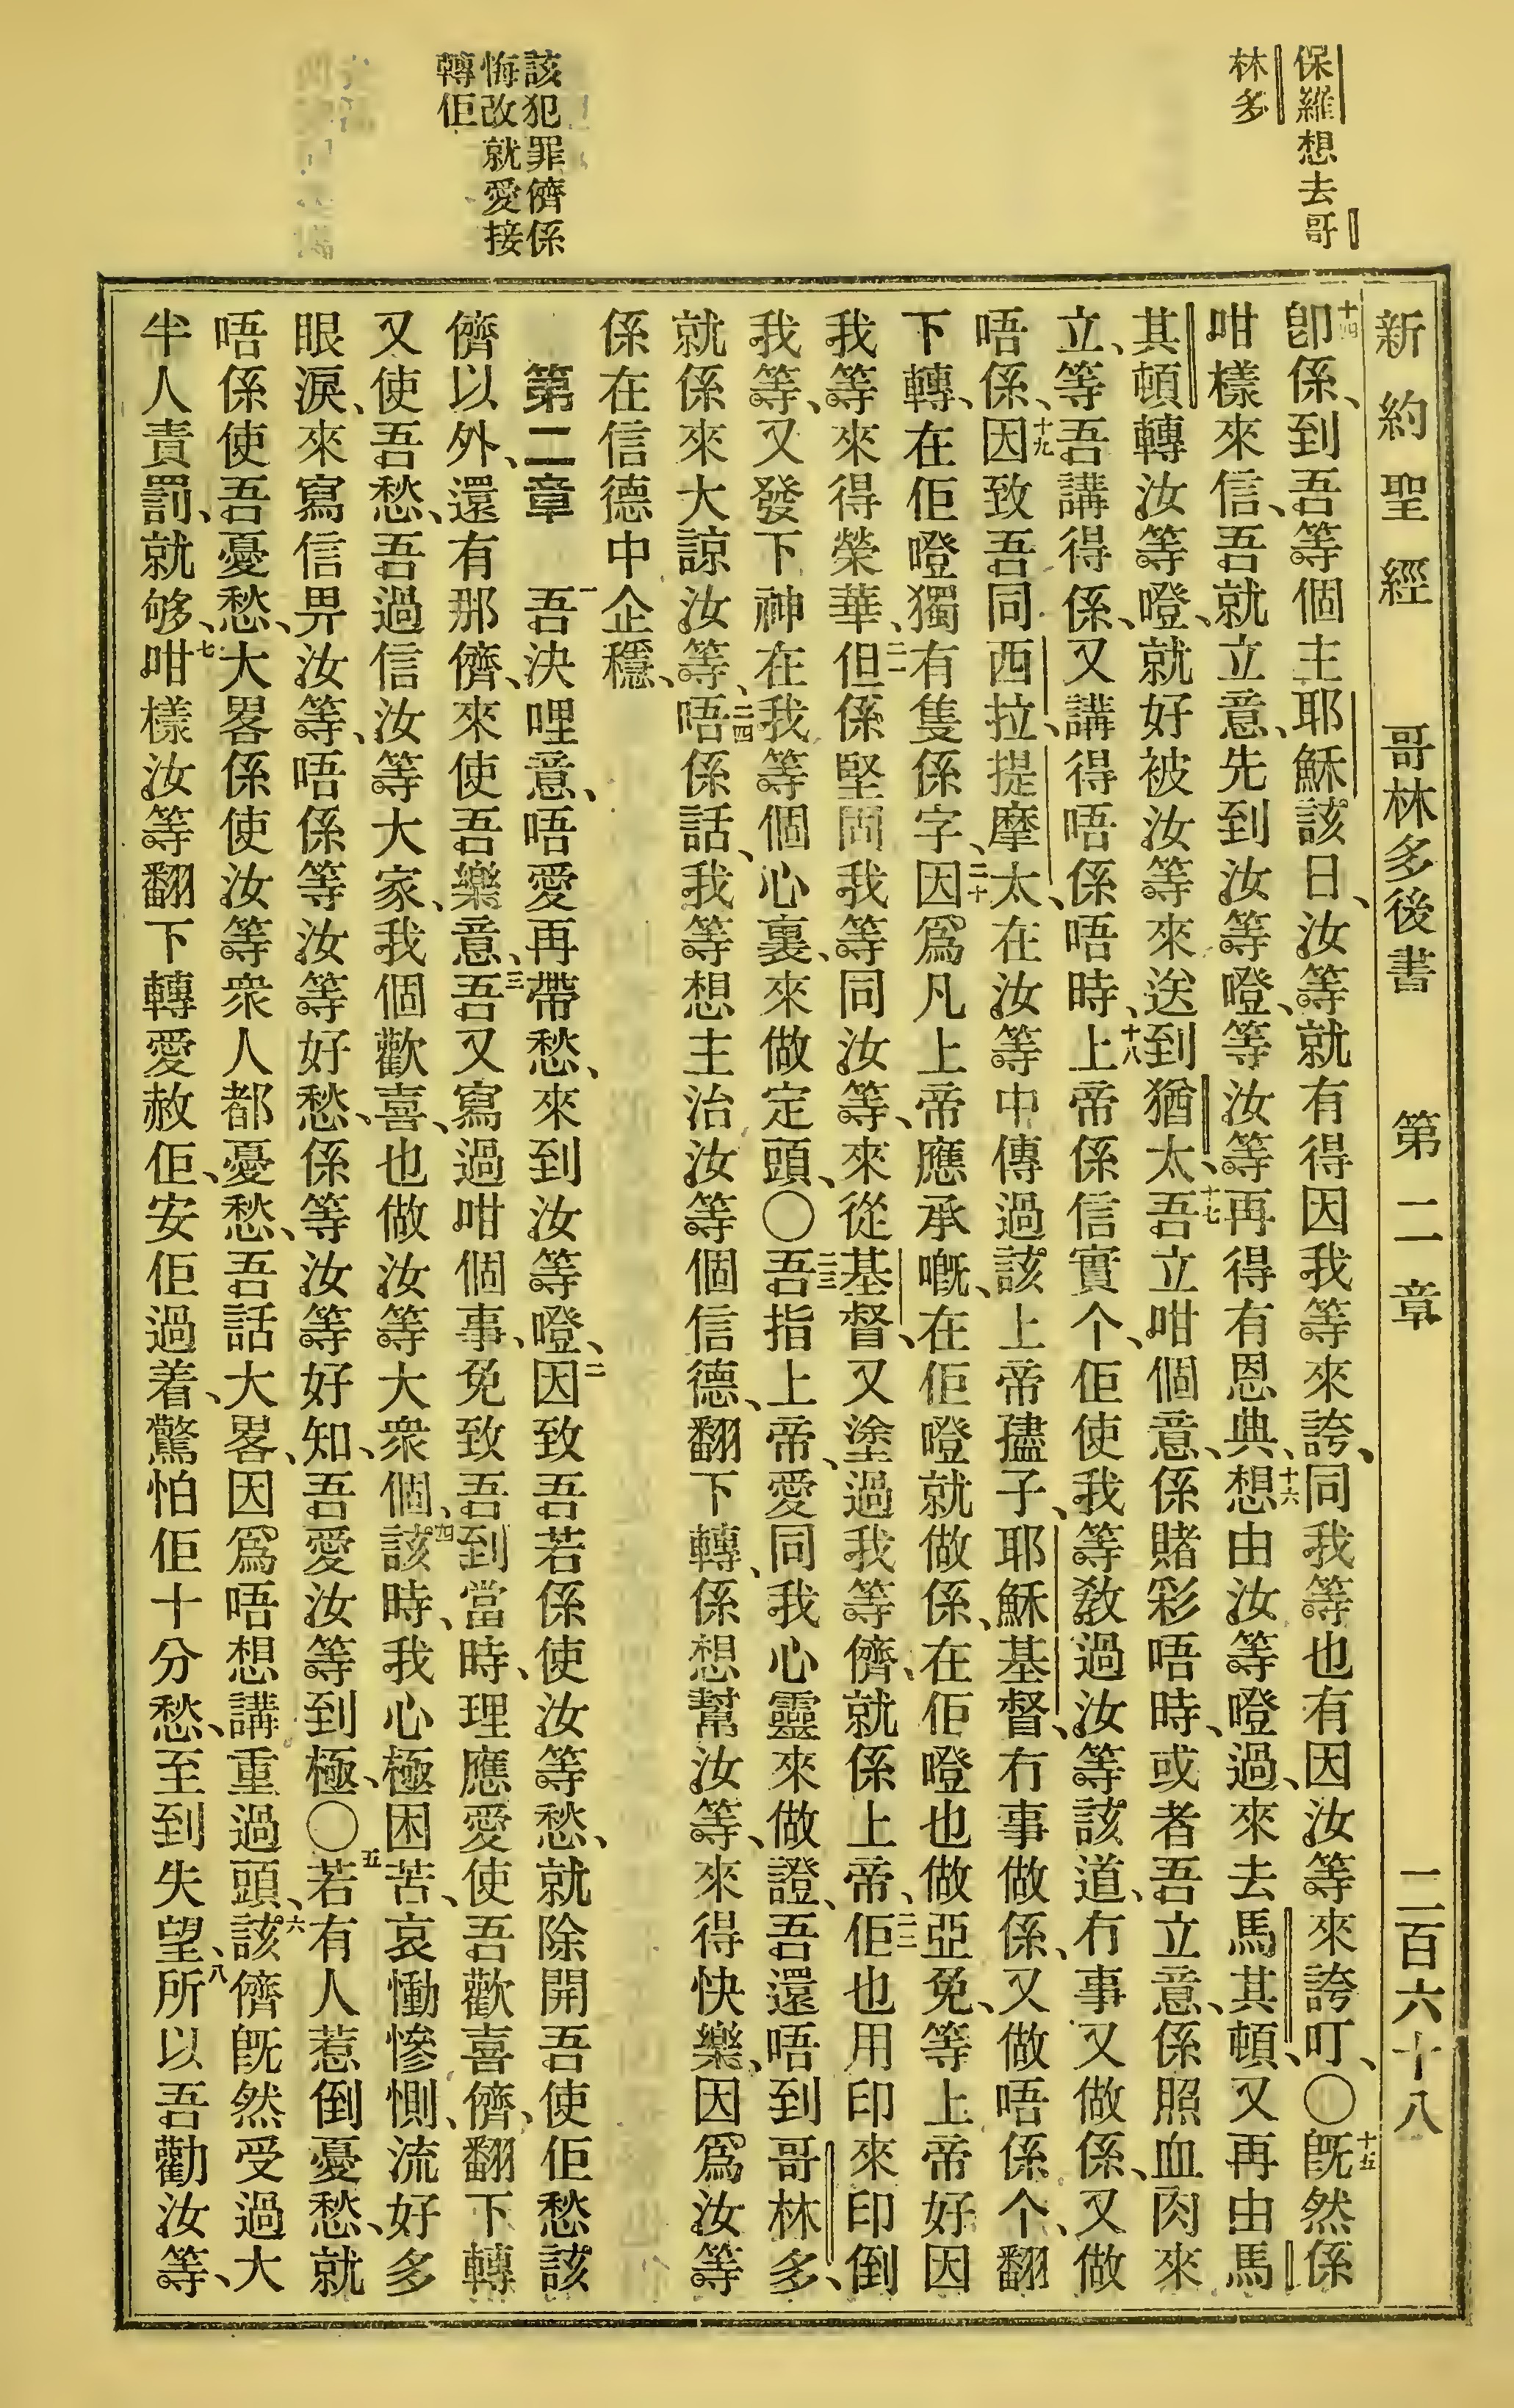 保羅想去哥
林多
該犯罪儕係
悔改就愛接
轉佢
新約聖經 哥林多後書 第二章 二百六十八
十四卽係、到吾等個主耶穌該日、汝等就有得因我等來誇、同我等也有因汝等來誇叮、〇十五旣然係
咁樣來信、吾就立意、先到汝等嶝、等汝等再得有恩典、十六想由汝等嶝過、來去馬其頓、又再由馬
其頓轉汝等嶝、就好被汝等來送到猶太、十七吾立咁個意、係賭彩唔時、或者吾立意、係照血肉來
立、等吾講得係、又講得唔係唔時、十八上帝係信實个、佢使我等教過汝等該道、冇事又做係、又做
唔係、十九因致吾同西拉、提摩太、在汝等中傳過該上帝孻子、耶穌基督、冇事做係、又做唔係个、翻
下轉、在佢嶝獨有隻係字、二十因爲凡上帝應承嘅、在佢嶝就做係、在佢嶝也做亞免、等上帝好因
我等來得榮華、二一但係堅固我等同汝等、來從基督、又塗過我等儕、就係上帝、二二佢也用印來印倒
我等、又發下神在我等個心裏、來做定頭、〇二三吾指上帝、愛同我心靈來做證、吾還唔到哥林多、
就係來大諒汝等、二四唔係話、我等想主治汝等個信德、翻下轉、係想幫汝等、來得快樂、因爲汝等
係在信德中企穩、
第二章 一吾決哩意、唔愛再帶愁、來到汝等嶝、二因致吾若係使汝等愁、就除開吾使佢愁該
儕以外、還有那儕、來使吾樂意、三吾又寫過咁個事、免致吾到當時、理應愛使吾歡喜儕、翻下轉
又使吾愁、吾過信汝等大家、我個歡喜、也做汝等大衆個、四該時、我心極困苦、哀慟慘惻、流好多
眼淚、來寫信畀汝等、唔係等汝等好愁、係等汝等好知、吾愛汝等到極、〇五若有人惹倒憂愁、就
唔係使吾憂愁、大畧係使汝等衆人都憂愁、吾話大畧、因爲唔想講重過頭、六該儕旣然受過大
半人責罰、就够、七咁樣汝等翻下轉愛赦佢、安佢過着、驚怕佢十分愁、至到失望、八所以吾勸汝等、